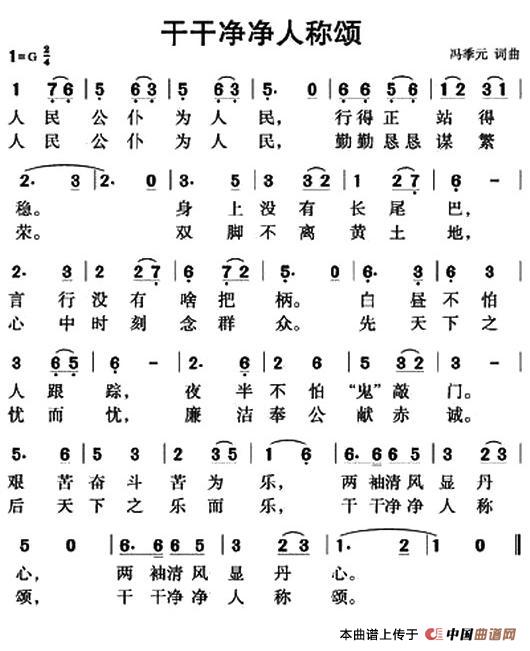 干干净净人称颂
1=G 2/4
冯季元 词曲
1 7 6 | 5 6 3 | 5 6 3 | 5· 0 | 6 6 5 6 | 1 2 3 1 |
人 民 公 仆 为 人 民, 行得正 站 得
人 民 公 仆 为 人 民, 勤勤恳恳谋 繁
2· 3 | 2· 0 | 3· 5 | 3 3 2 | 1 2 7 | 6 - |
稳。 身 上 没 有 长 尾 巴,
荣。 双 脚 不 离 黄 土 地,
2· 3 | 2 2 7 | 6 7 2 | 5· 0 | 6· 3 | 2 3 |
言 行 没 有 啥 把 柄。 白 昼 不 怕
心 中 时 刻 念 群 众。 先 天 下 之
3 6 5 | 6 - | 2· 3 | 2 1 6 | 5 3 2 | 3 - |
人 跟 踪, 夜 半 不 怕 “鬼” 敲 门。
忧 而 忧, 廉 洁 奉 公 献 赤 诚。
5· 6 | 5 3 | 2 3 5 | 1 6 | 6· 6 6 5 | 3 2 3 |
艰 苦 奋 斗 苦 为 乐, 两 袖清 风 显 丹
后 天 下 之 乐 而 乐, 干 干净 净 人 称
5 0 | 6· 6 6 5 | 3 2 3 | 1· 2 | 1 0 ‖
心, 两 袖清 风 显 丹 心。
颂, 干 干净 净 人 称 颂。
本曲谱上传于 中国曲谱网